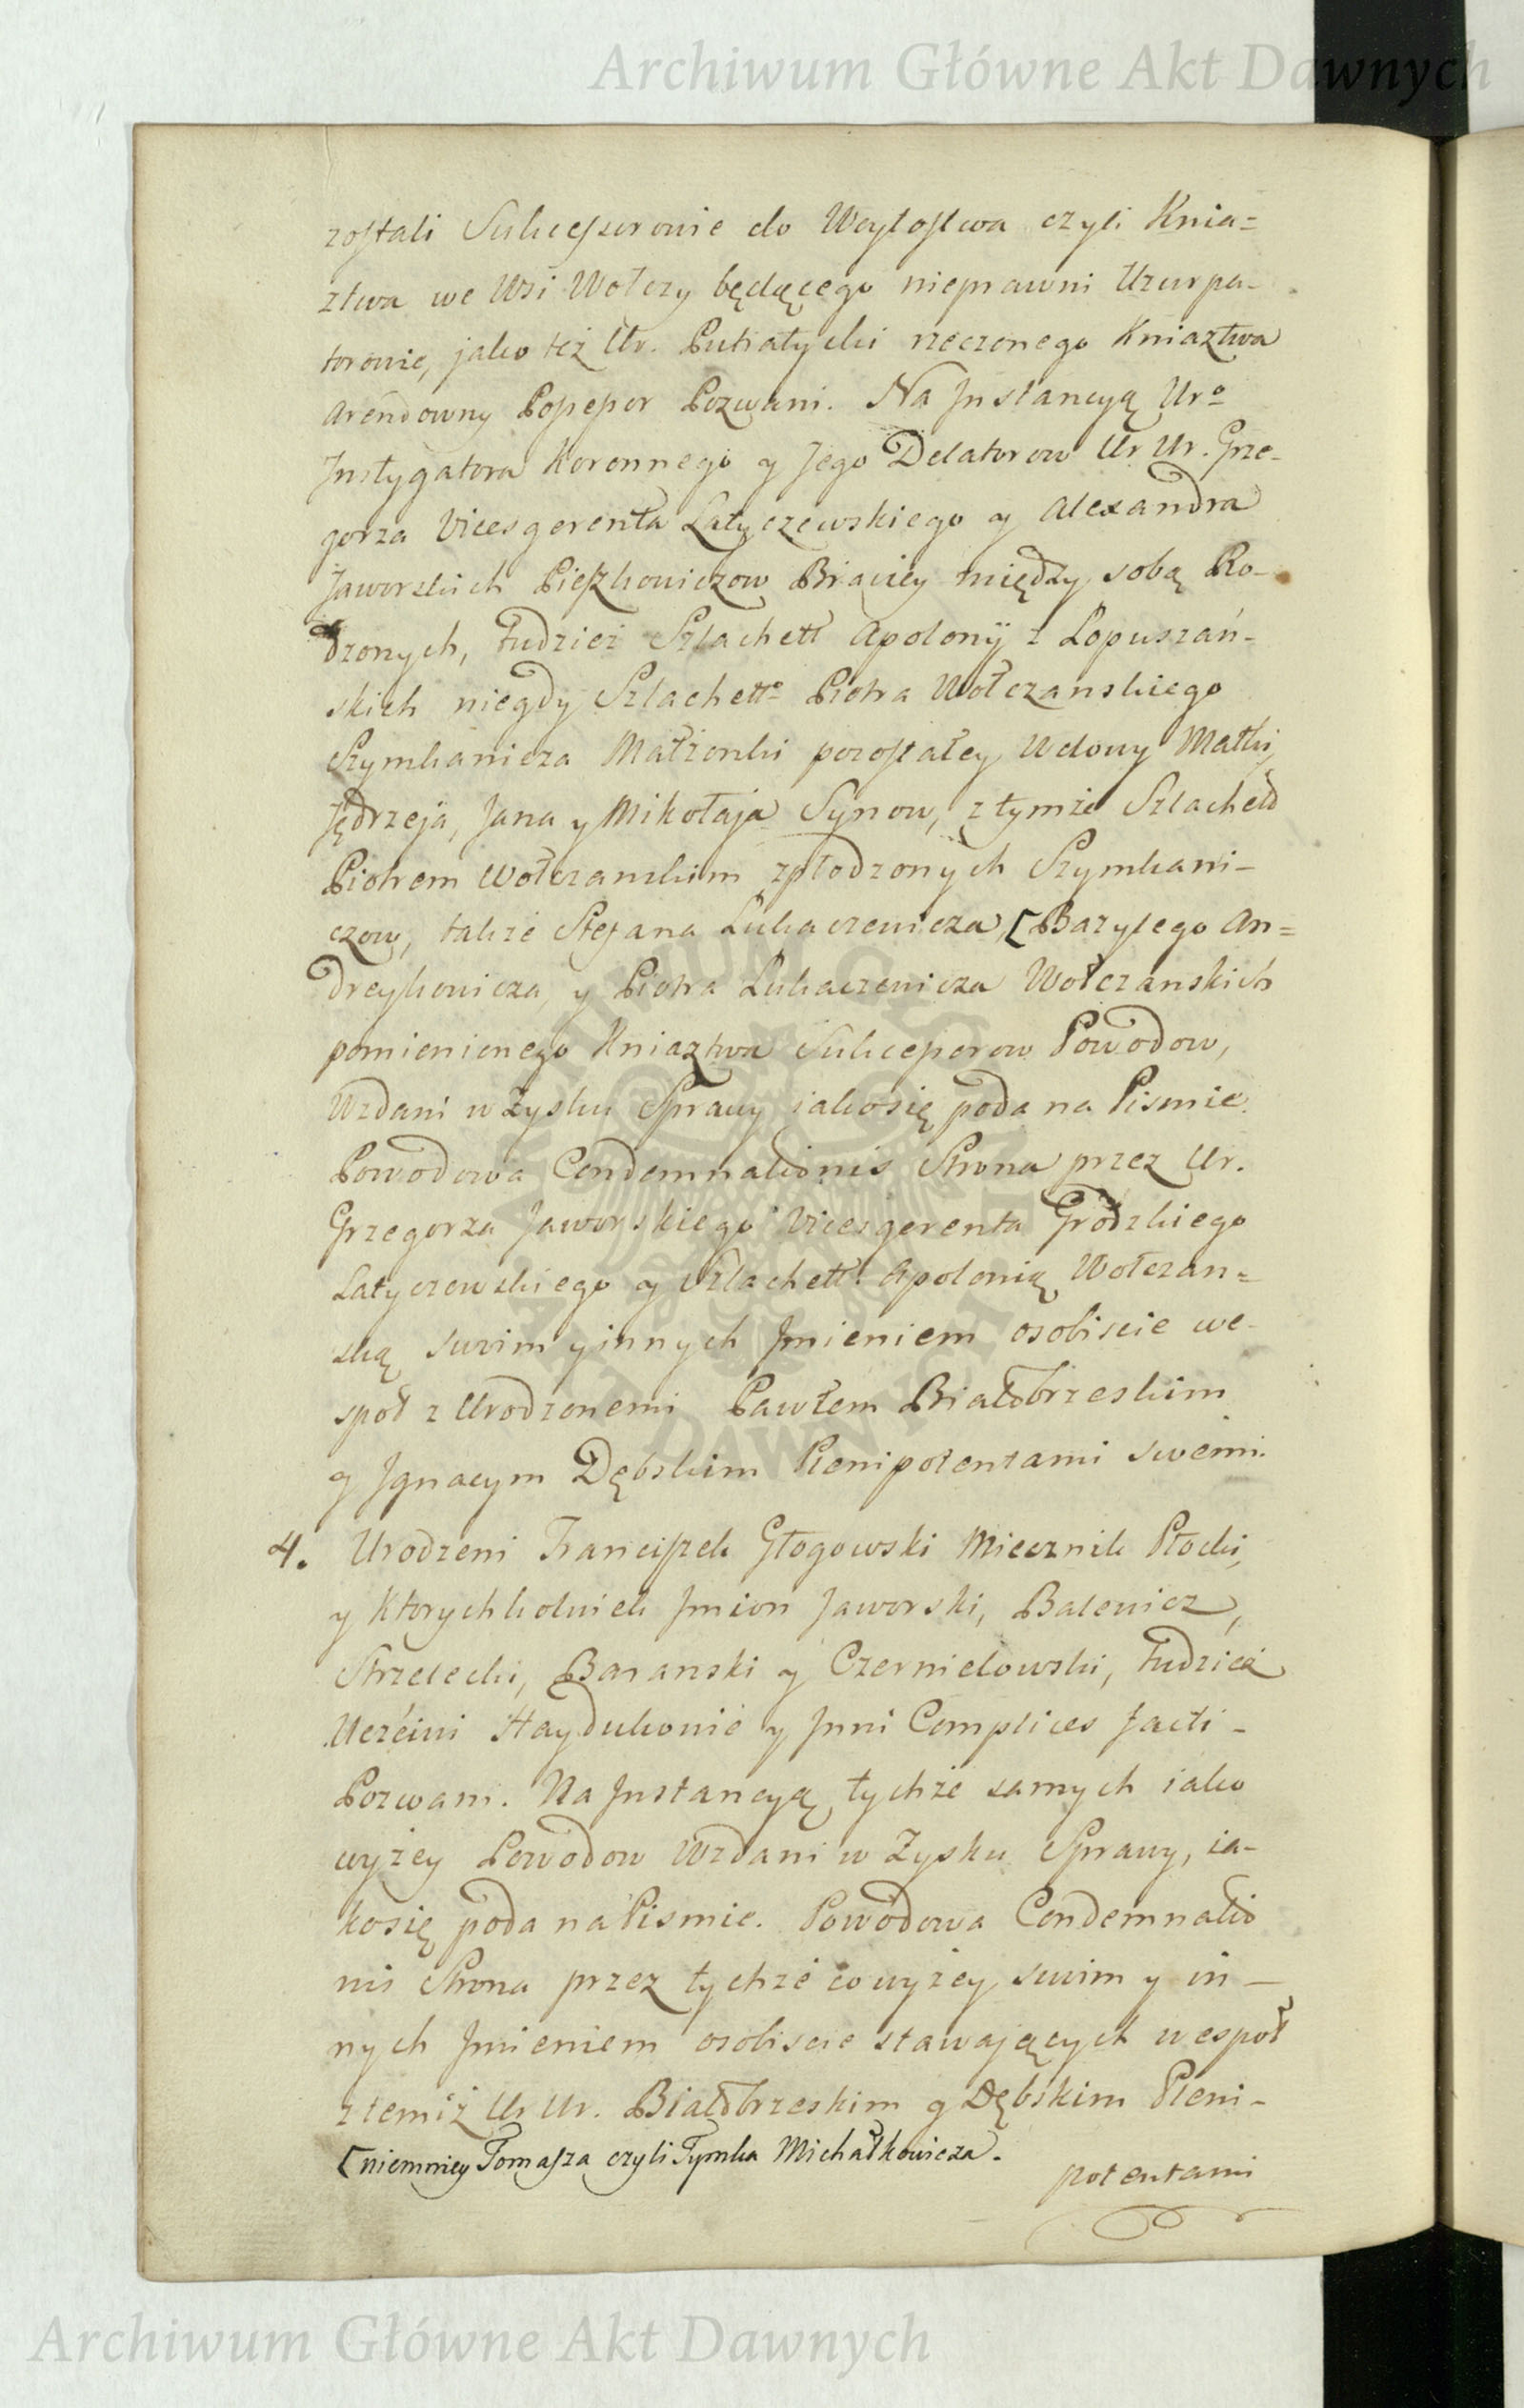 Archiwum Główne Akt Dawnych
zostali Sukcessorowie do Woytostwa czyli Knia=
ztwa we Wsi Wołczy będącego nieprawni Uzurpa-
torowie, jako też Ur. Putiatycki rzeczonego Kniaztwa
Arendowny Possessor Pozwani. Na Instancyą Uro
Instygatora Koronnego y Jego Delatorow Ur Ur. Grze-
gorza Vicesgerenta Latyczewskiego y Alexandra
Jaworskich Pieszkowiczow Braciey między sobą Ro-
dzonych, tudzież Szlachett Apolonij z Łopuszań-
skich niegdy Szlachetto Piotra Wołczanskiego
Szymkanicza Małżonki pozostałey Wdowy Matki,
Jędrzeja, Jana y Mikołaja Synow, z tymże Szlachett
Piotrem Wołczanskim spłodzonych Szymkani-
czow, takze Stefana Lukaczewicza, [Bazylego An=
dreykowicza, y Piotra Lukaczewicza Wołczanskich
pomienionego Kniaztwa Sukcessorow Powodow,
Wzdani w Zysku Sprawy jako się poda na Pismie.
Powodowa Condemnationis Strona przez Ur.
Grzegorza Jaworskiego Vicesgerenta Grodzkiego
Latyczewskiego y Szlachett. Apolonią Wołczan=
ską swoim y innych Jmieniem osobiscie we-
społ z Urodzonemi Pawłem Białobrzeskim
y Jgnacym Dębskim Plenipotentami swemi.
4. Urodzeni Franciszek Głogowski Miecznik Płocki,
y Ktorychkolwiek Jmion Jaworski, Balewicz,
Strzelecki, Baranski y Czernielowski, tudzież
Uczciwi Haydukowie y Jnni Complices facti -
Pozwani. Na Jnstancyą tychże samych iako
wyżey Powodow Wzdani w Zysku Sprawy, ia-
ko się poda na Pismie. Powodowa Condemnatio
nis Strona przez tychże co wyżey swoim y in-
nych Jmieniem osobiscie stawających wespoł
z temiż Ur Ur. Białobrzeskim y Dębskim Pleni-
[niemniey Tomasza czyli Tymka Michałkowicza.
potentami
Archiwum Główne Akt Dawnych